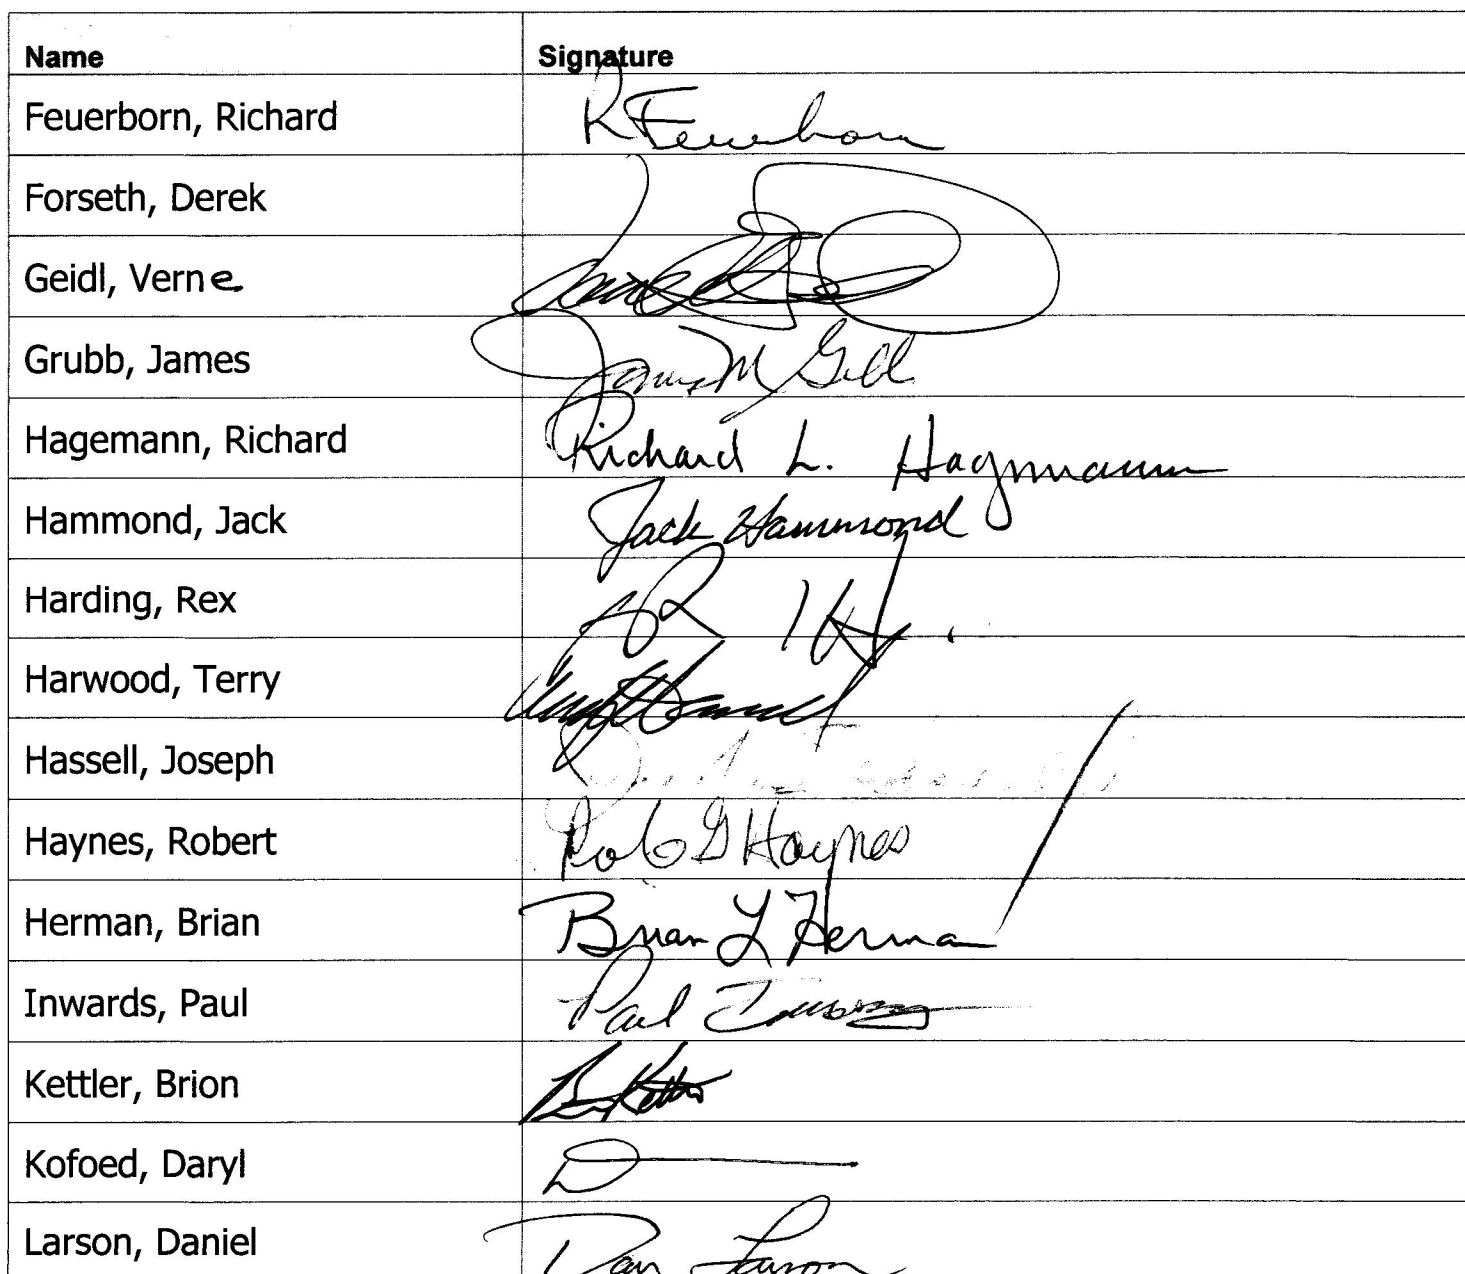 Name Signature
Feuerborn, Richard R Feuerborn
Forseth, Derek
Geidl, Verne
Grubb, James James M
Hagemann, Richard Richard L. Hagemann
Hammond, Jack Jack Hammond
Harding, Rex
Harwood, Terry Terry
Hassell, Joseph
Haynes, Robert Rob G Haynes
Herman, Brian Brian L Herman
Inwards, Paul Paul Inwards
Kettler, Brion
Kofoed, Daryl D
Larson, Daniel Dan Larson